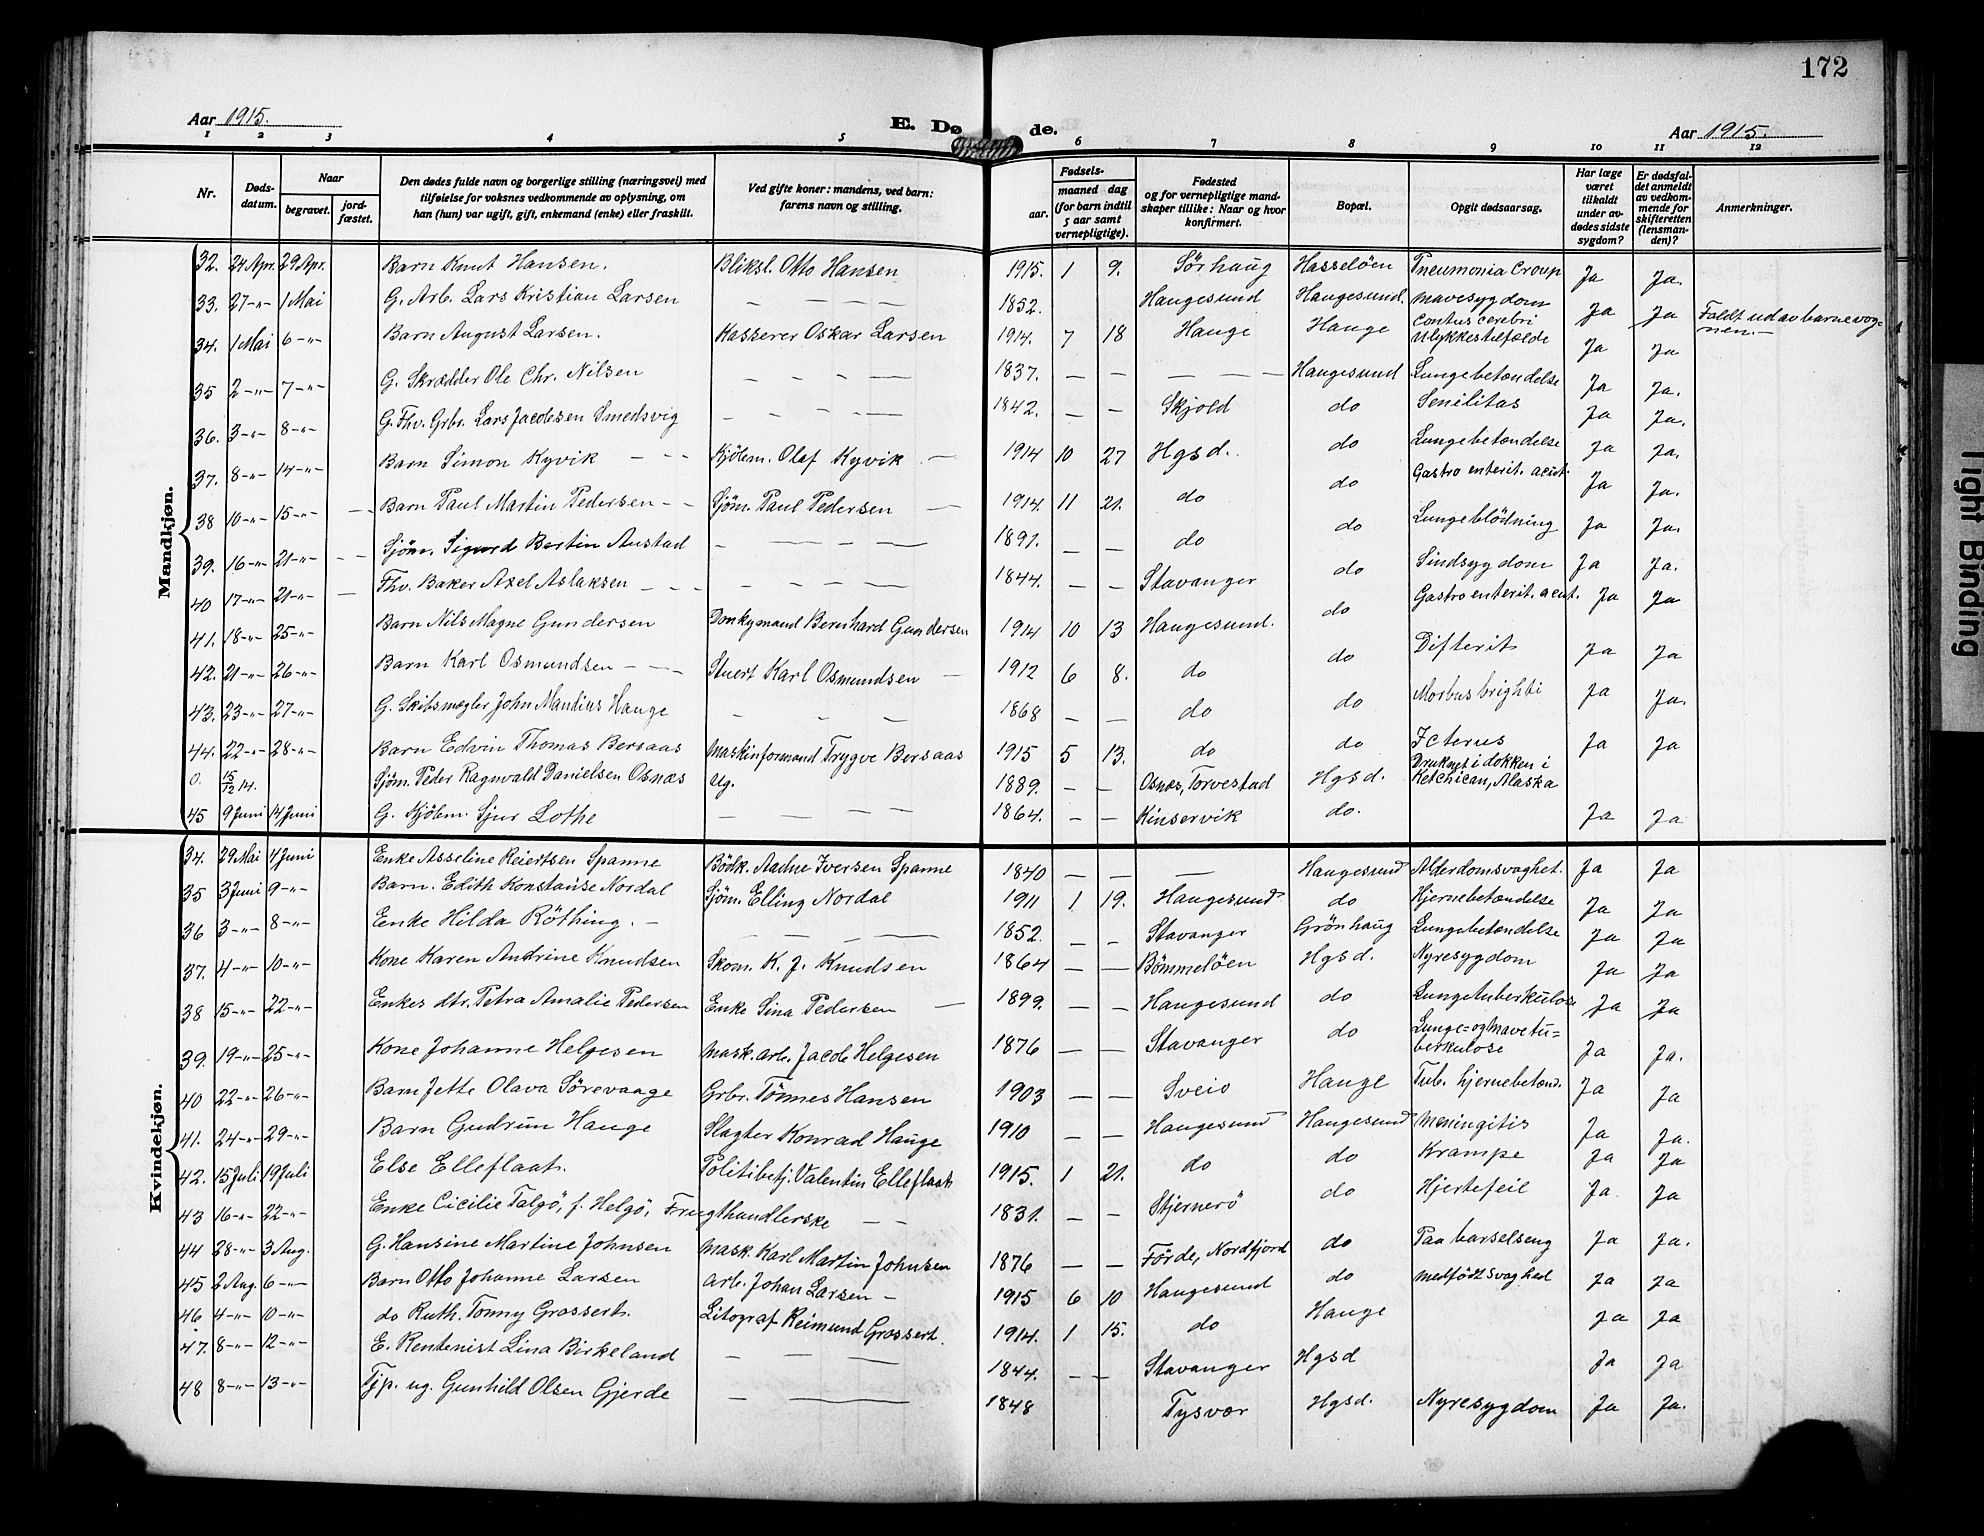 172
Aar 1915. E. Dø de. Aar 1915.
1 2 3 4 5 6 7 8 9 10 11 12
Nr. Døds-datum. Naar begravet. jord-fæstet. Den dødes fulde navn og borgerlige stilling (næringsvei) med tilføielse for voksnes vedkommende av oplysning, om han (hun) var ugift, gift, enkemand (enke) eller fraskilt. Ved gifte koner: mandens, ved barn: farens navn og stilling. Fødsels- aar. maaned dag (for barn indtil 5 aar samt vernepligtige). Fødested og for vernepligtige mand-skaper tillike: Naar og hvor konfirmert. Bopæl. Opgit dødsaarsag. Har læge været tilkaldt under av-dødes sidste sygdom? Er dødsfal-det anmeldt av vedkom-mende for skifteretten (lensman-den)? Anmerkninger.
Mandkjøn.
32. 24 Apr. 29 Apr. Barn Knut Hansen. Bliksl. Otto Hansen 1915. 1 9. Sørhaug Hasseløen Pneumonia Croup Ja Ja.
33. 27 -"- 1 Mai G. Arb. Lars Kristian Larsen — — — — 1852. Haugesund Haugesund. Mavesygdom Ja Ja
34. 1 Mai 6 -"- Barn August Larsen. Kasserer Oskar Larsen 1914. 7 18 Hauge Hauge Contus cerebri Ulykkestilfælde Ja Ja Faldt ud av barnevog-nen.—
35 2 -"- 7 -"- G. Skrædder Ole Chr. Nilsen — — — — 1837. — — — — — Haugesund Lungebetændelse Ja Ja.
36. 3 -"- 8 -"- G. Fhv. Grbr. Lars Jacobsen Smedsvig — — — — 1842. — — Skjold do Senilitas Ja Ja.
37. 8 -"- 14 -"- Barn Simon Kyvik — - - Kjølem. Olaf Kyvik — 1914 10 27 Hgsd. do Lungebetændelse Ja Ja.
38 10 -"- 15 -"- Barn Paul Martin Pedersen - - Sjøm. Paul Pedersen — 1914. 11 21. do do Gastro enterit. acut. Ja Ja.
39. 16 -"- 21 -"- Sjøm. Sigurd Bertin Austad — — — — 1891. — — do do Lungeblødning Ja Ja.
40 17 -"- 21 -"- Fhv. Baker Axel Aslaksen - - - — — — — 1844. — — Stavanger do Sindsygdom Ja Ja.
41. 18 -"- 25 -"- Barn Nils Magne Gundersen Donkymand Bernhard Gundersen 1914 10 13 Haugesund. do Gastro enterit. acut. Ja Ja
42. 21 -"- 26 -"- Barn Karl Osmundsen - - - Stuert Karl Osmundsen — 1912 6 8. do do Difterit Ja Ja
43. 23 -"- 27 -"- G. Skibsmægler John Mandius Hauge — — — 1868 — — do do Morbus brighti Ja Ja.
44. 22 -"- 28 -"- Barn Edvin Thomas Bersaas Maskinformand Trygve Bersaas 1915 5 13. do do Icterus Ja Ja
0. 15/12 14. Sjøm. Peder Ragnvald Danielsen Osnæs Ug. 1889. — — Osnæs, Torvestad Hgsd. Druknet i dokken i Ketchican, Alaska
45 9 Juni 14 Juni G. Kjølem. Sjur Lothe — — — — 1864. — — Kinservik do. Ja Ja
Kvindekjøn.
34. 29 Mai 4 Juni Enke Asseline Reiertsen Spanne Bødk. Aadne Iversen Spanne 1840 — — — Haugesund Alderdomsvaghet. Ja Ja
35 3 Juni 9 -"- Barn. Edith Konstanse Nordal Sjøm. Elling Nordal 1911 1 19. Haugesund do Hjernebetændelse Ja Ja
36 3 -"- 8 -"- Enke Hilda Röthing. — — — — 1852. — — Stavanger Grönhaug Lungebetændelse Ja Ja
37. 4 -"- 10 -"- Kone Karen Andrine Knudsen Skom. K. J. Knudsen 1864 — — Bømmeløen Hgsd. Nyresygdom Ja Ja
38 15 -"- 22 -"- Enkes dtr. Petra Amalie Pedersen Enke Sina Pedersen — 1899. — — Haugesund do Lungetuberkulose Ja Ja
39. 19 -"- 25 -"- Kone Johanne Helgesen Mask.arb. Jacob Helgesen 1876 — — Stavanger do Lunge= og mavetu=berkulose Ja Ja.
40 22 -"- 26 -"- Barn Jette Olava Sørevaage Grbr. Tönnes Hansen 1903 — — Sveio Hauge Tub. hjernebetænd. Ja Ja
41. 24 -"- 29 -"- Barn Gudrun Hauge Slagter Konrad Hauge 1910 — — Haugesund Haugesund Meningitis Ja Ja.
42. 15 Juli 19 Juli Else Elleflaat. Politibetj. Valentin Elleflaat 1915. 1 21. do do Krampe Ja Ja
43 16 -"- 22 -"- Enke Cicilie Talgö, f. Helgö, Frugthandlerske — — 1831. — — Stjernerö do Hjertefeil Ja. Ja
44 28 -"- 3 Aug. G. Hansine Martine Johnsen Mask. Karl Martin Johnsen 1876 — — Förde, Nordfjord do Paa barselseng Ja Ja.
45 2 Aug. 6 -"- Barn Otto Johanne Larsen Arb. Johan Larsen — 1915 6 10 Haugesund do Medfödt svaghed Ja Ja
46 4 -"- 10 -"- do Ruth. Tonny Grassert. Litograf Reimund Grassert. 1914. 1 15. do Hauge Ja Ja
47. 8 -"- 12 -"- E. Rentenist Lina Birkeland — — — 1844. — — Stavanger Hgsd Ja Ja
48 8 -"- 13 -"- Tjp. ug. Gunhild Olsen Gjerde — — 1848 Tysvær Hgsd. Nyresygdom Ja Ja.
Tight Binding